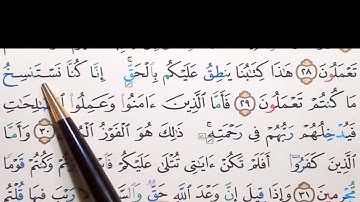 تَعْمَلُونَ ﴿٢٨﴾ هَٰذَا كِتَٰبُنَا يَنطِقُ عَلَيْكُم بِٱلْحَقِّ ۚ إِنَّا كُنَّا نَسْتَنسِخُ
مَا كُنتُمْ تَعْمَلُونَ ﴿٢٩﴾ فَأَمَّا ٱلَّذِينَ ءَامَنُوا۟ وَعَمِلُوا۟ ٱلصَّٰلِحَٰتِ
فَيُدْخِلُهُمْ رَبُّهُمْ فِى رَحْمَتِهِۦ ۚ ذَٰلِكَ هُوَ ٱلْفَوْزُ ﴿٣٠﴾ وَأَمَّا
ٱلَّذِينَ كَفَرُوٓا۟ أَفَلَمْ تَكُنْ ءَايَٰتِى تُتْلَىٰ عَلَيْكُمْ وَكُنتُمْ قَوْمًا
مُّجْرِمِينَ ﴿٣١﴾ وَإِذَا قِيلَ إِنَّ وَعْدَ ٱللَّهِ حَقٌّ رَيْبَ فِيهَا قُلْتُم